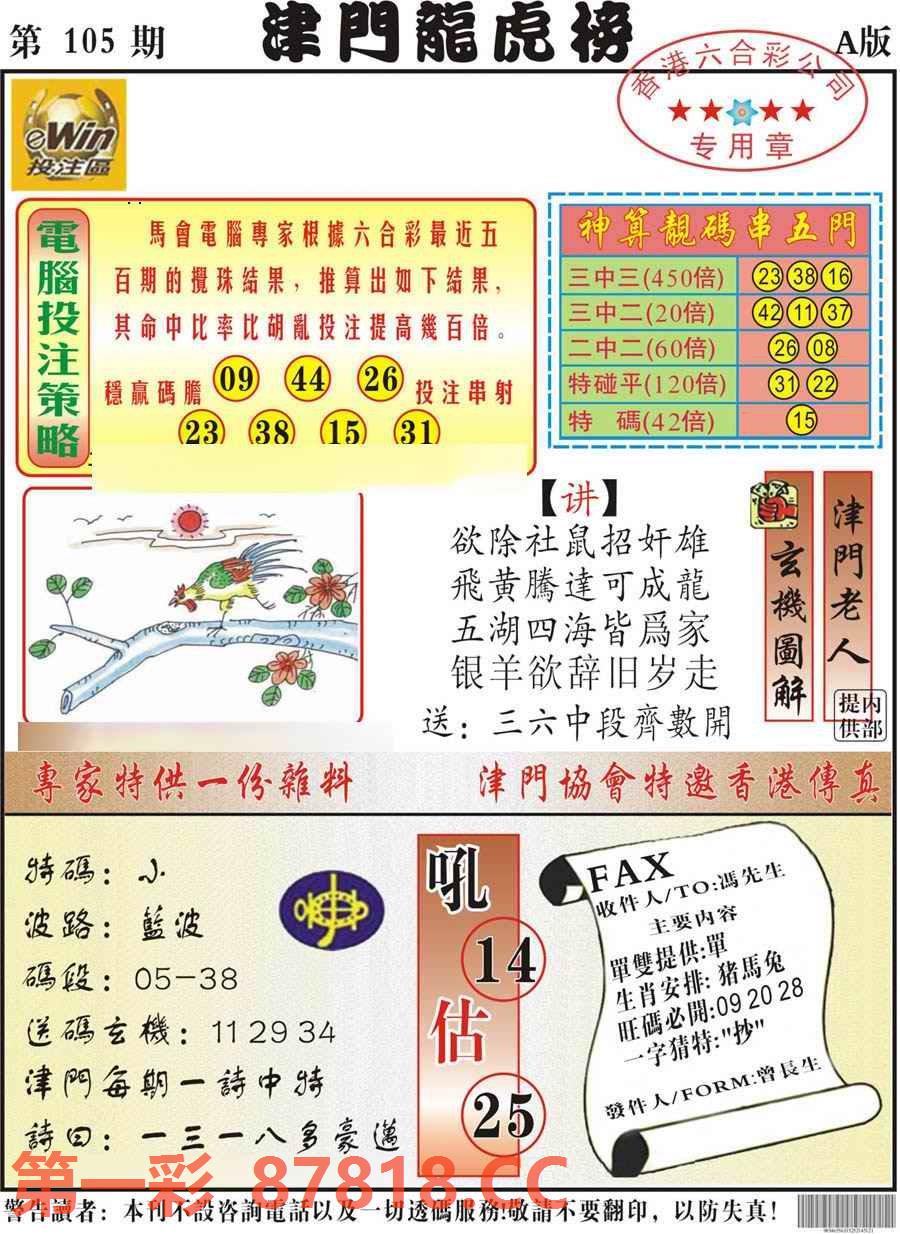 第 105 期
津門龍虎榜
A版
香港六合彩公司
专用章
eWin
投注區
電腦投注策略
馬會電腦專家根據六合彩最近五
百期的攪珠結果，推算出如下結果，
其命中比率比胡亂投注提高幾百倍。
穩贏碼膽 09 44 26 投注串射
23 38 15 31
神算靚碼串五門
三中三(450倍) 23 38 16
三中二(20倍) 42 11 37
二中二(60倍) 26 08
特碰平(120倍) 31 22
特 碼(42倍) 15
【讲】
欲除社鼠招奸雄
飛黃騰達可成龍
五湖四海皆爲家
银羊欲辞旧岁走
送：三六中段齊數開
玄機圖解
津門老人
提供
内部
專家特供一份雜料
津門協會特邀香港傳真
特碼：小
波路：藍波
碼段：05-38
送碼玄機：11 29 34
津門每期一詩中特
詩曰：一三一八多豪邁
吼
14
估
25
FAX
收件人/TO:馮先生
主要內容
單雙提供:單
生肖安排:猪馬兔
旺碼必開:09 20 28
一字猜特:"抄"
發件人/FORM:曾長生
第一彩 87818.CC
警告讀者：本刊不設咨詢電話以及一切透碼服務!敬請不要翻印，以防失真!